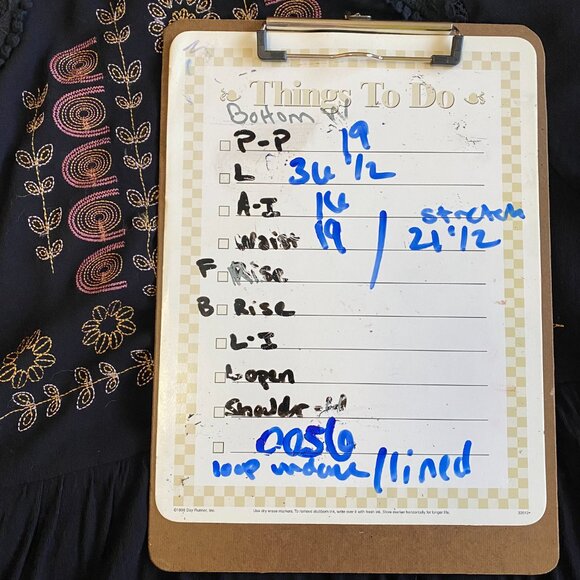 Things To Do
Bottom
P-P 19
L 36 1/2
A-I 16
stretch
Waist 19 / 21 1/2
F Rise
B Rise
L-I
L open
Shoulder
0056
loop / lined
©1998 Day Runner, Inc. Use dry erase markers. To remove stubborn ink, write over it with fresh ink. Store marker horizontally for longer life.